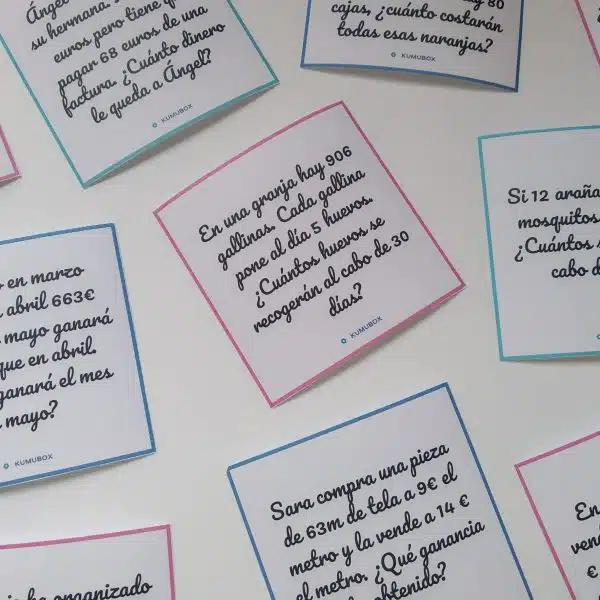 Ángel
su hermana.
euros pero tiene que
pagar 68 euros de una
factura. ¿Cuánto dinero
le queda a Ángel?
KUMUBOX
80
cajas, ¿cuánto costarán
todas esas naranjas?
KUMUBOX
En una granja hay 906
gallinas. Cada gallina
pone al día 5 huevos.
¿Cuántos huevos se
recogerán al cabo de 30
días?
KUMUBOX
Si 12
mosquitos
¿Cuántos
cabo
en marzo
abril 663€
mayo ganará
que en abril.
ganará el mes
mayo?
KUMUBOX
Sara compra una pieza
de 63m de tela a 9€ el
metro y la vende a 14 €
el metro. ¿Qué ganancia
obtenido?
En
€
ha organizado